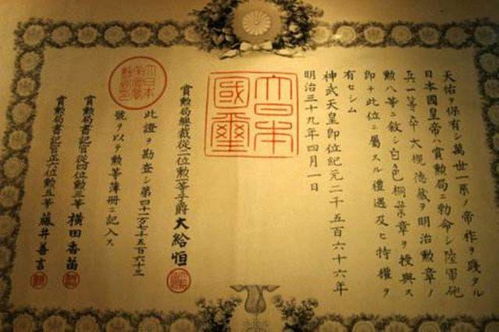 天佑ヲ保有シ萬世一系ノ帝祚ヲ踐タル
日本國皇帝ハ賞勲局ニ勅命シ陸軍砲
兵一等卒大槻德蔵ヲ明治勲章ノ
勲八等ニ敘シ白色桐葉章ヲ授與ス
即チ此位ニ属スル禮遇及ヒ特權ヲ
有セシム
神武天皇即位紀元二千五百六十六年
明治三十九年四月一日
大日本
國璽
賞勲局總裁從二位勲一等子爵大給恒
此證ヲ勘査シ第四十一万七千五百六十三
號ヲ以テ勲等簿冊ニ記入ス
賞勲局書記官從四位勲三等横田香苗
賞勲局書記官正六位勲五等藤井善言